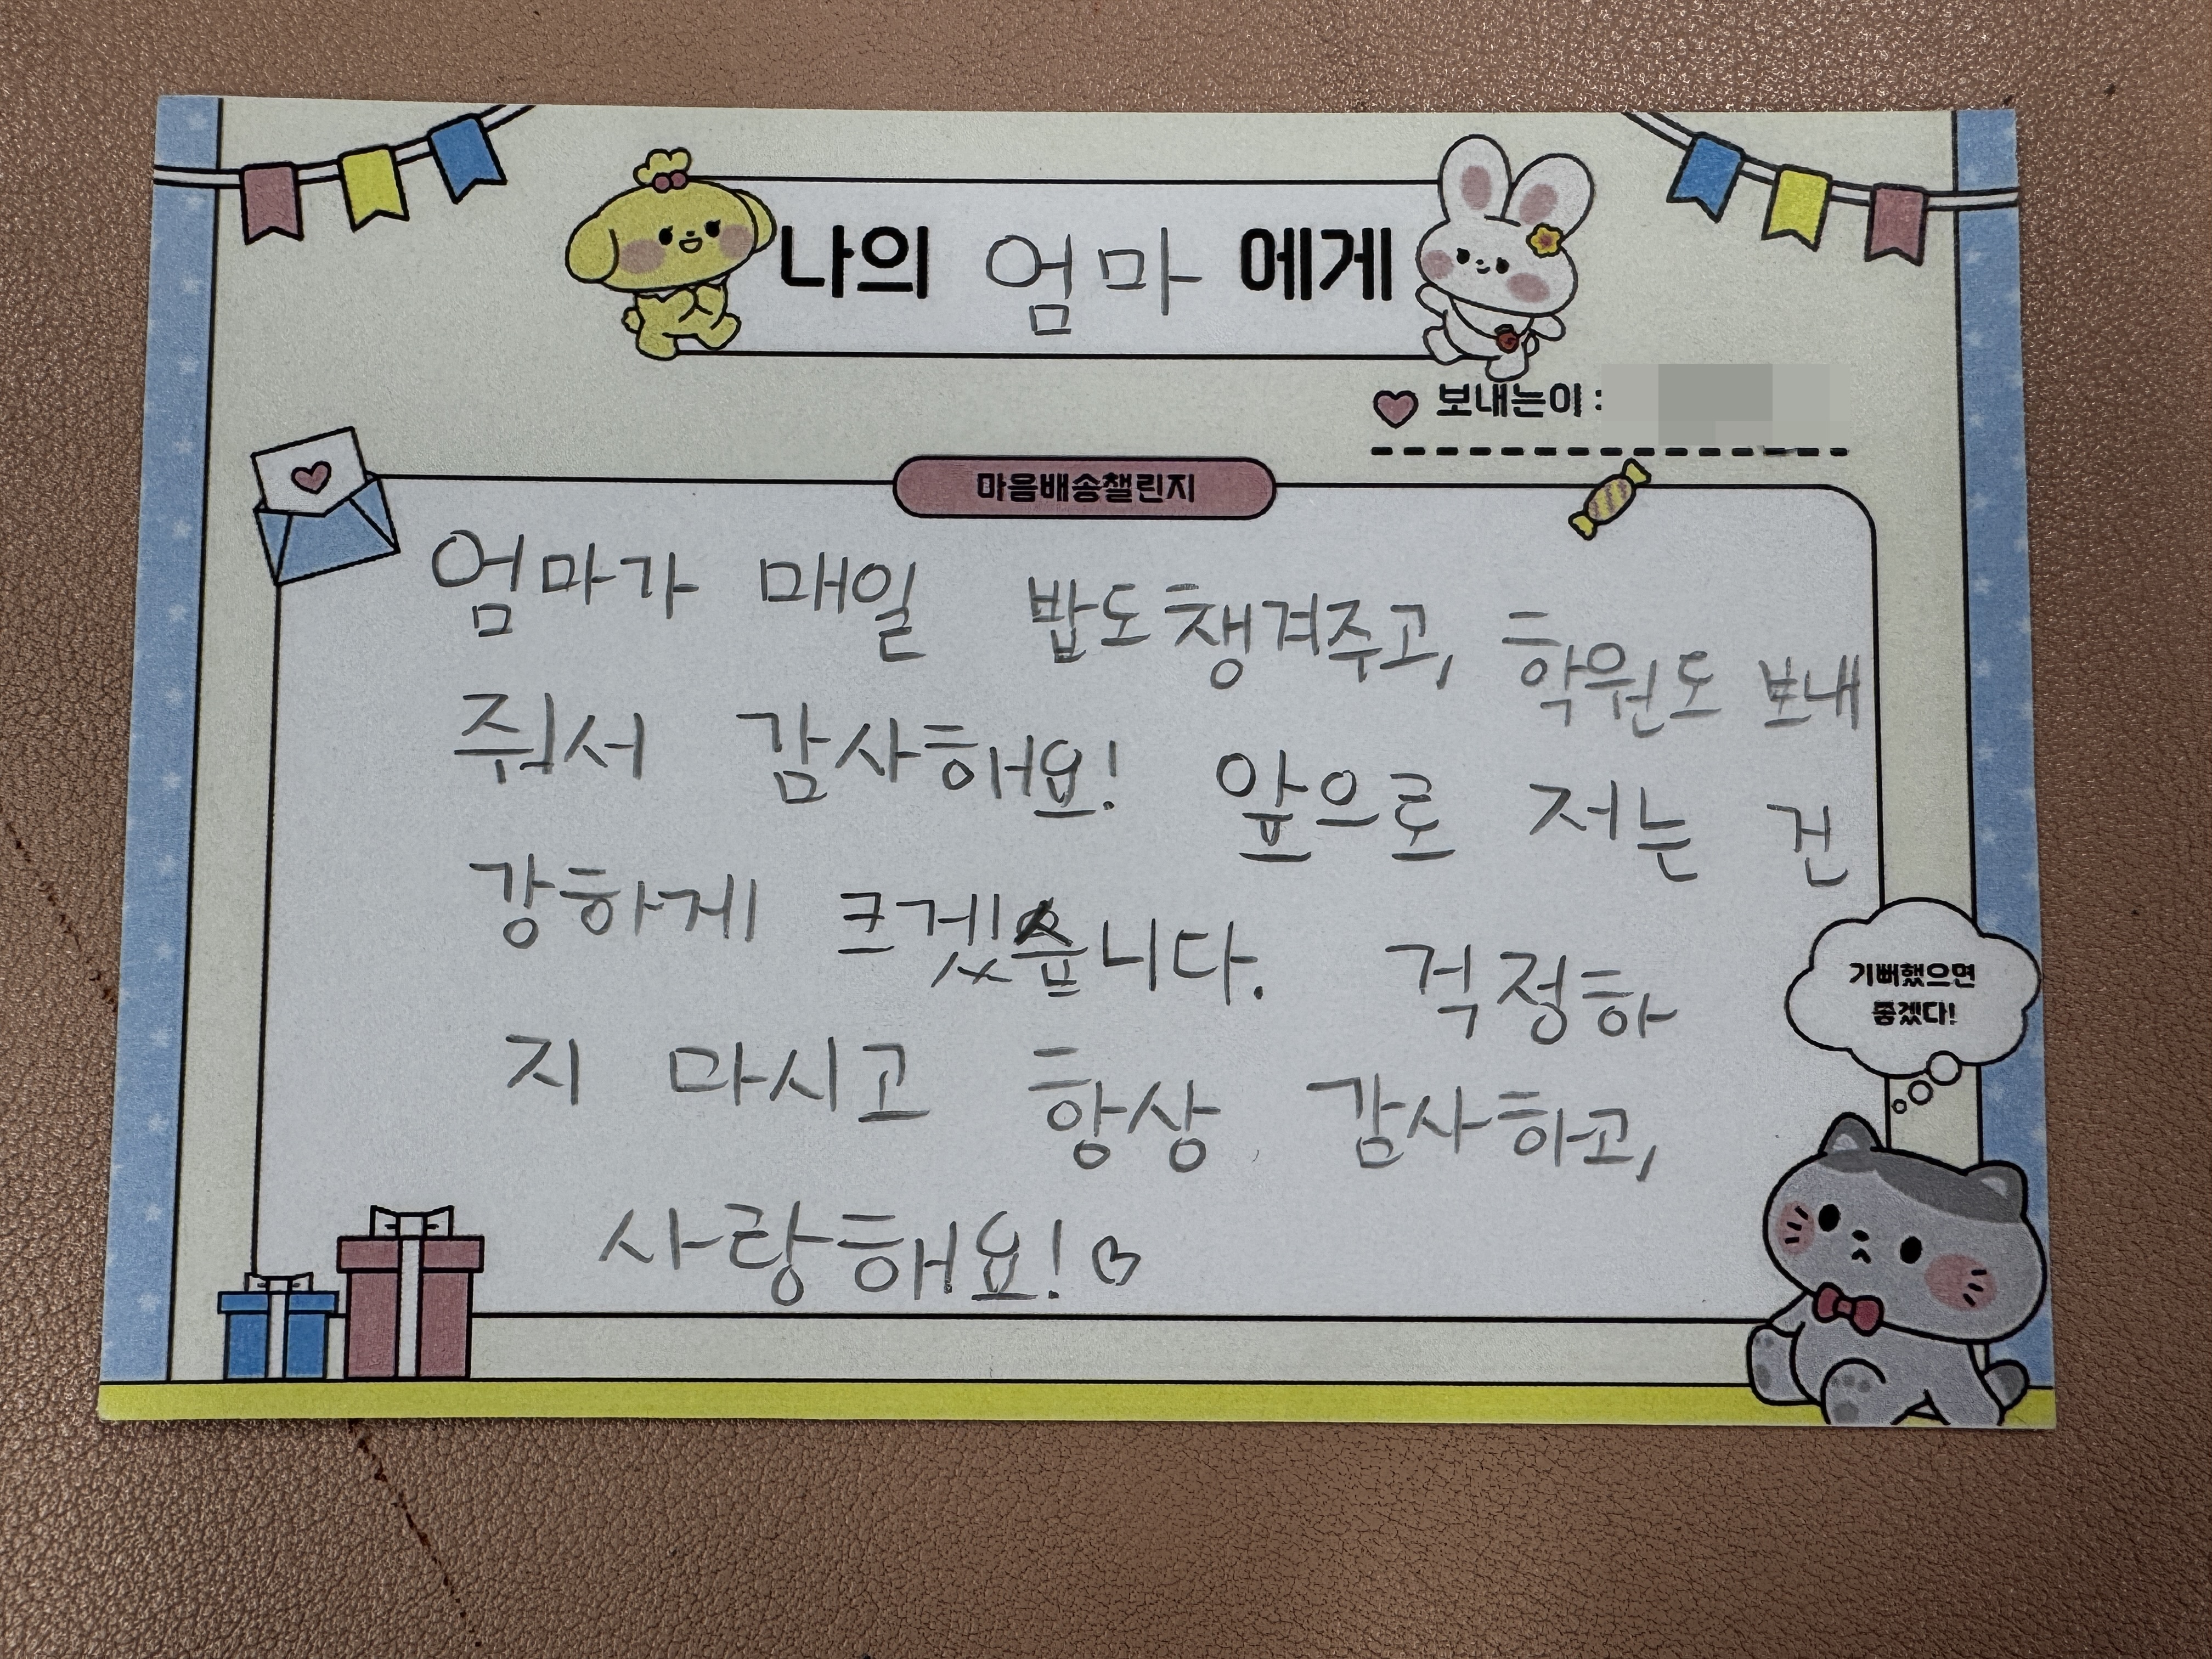 나의 엄마 에게
보내는이 :
마음배송챌린지
엄마가 매일 밥도 챙겨주고, 학원도 보내
줘서 감사해요! 앞으로 저는 건
강하게 크겠습니다. 걱정하
지 마시고 항상 감사하고,
사랑해요!♡
기뻐했으면
좋겠다!